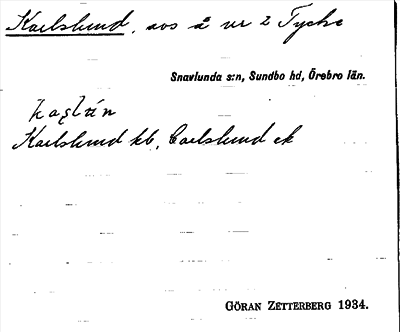 Karlslund, avs å vr 2 Tycke
Snavlunda s:n, Sundbo hd, Örebro län.
Karlslund kb, Carlslund ek
GÖRAN ZETTERBERG 1934.